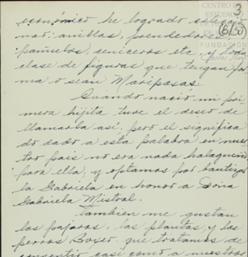 3
(613)
económico he logrado
nar: anillas, prendedores
pañuelos, ceniceros etc. y toda
clase de figuras que tengan for
ma o sean Mariposas.
Cuando nació mi pri
mera hijita tuve el deseo de
llamarla así, pero el significa
do dado a esta palabra en nues
tro país no era nada halagueño
para ella, y optamos por bautizar
la Gabriela en honor a Doña
Gabriela Mistral.
También me gustan
los pájaros, las plantas y los
perros Boxer, que tratamos de
consentir casi como a nuestros